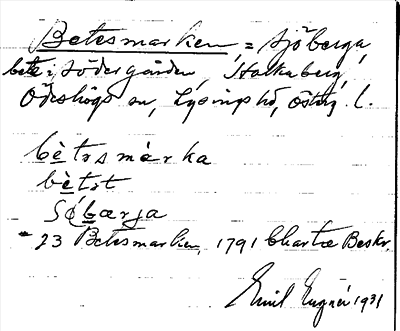 Betesmarken, = Sjöberga,
bete i Södergården, Stolkaberg,
Ödeshögs sn, Lysings hd, Österg. l.
bètsmàrka
bètst
Sǿbærja
- 23 Betesmarken, 1791 Chartæ Beskr.
Emil 1931